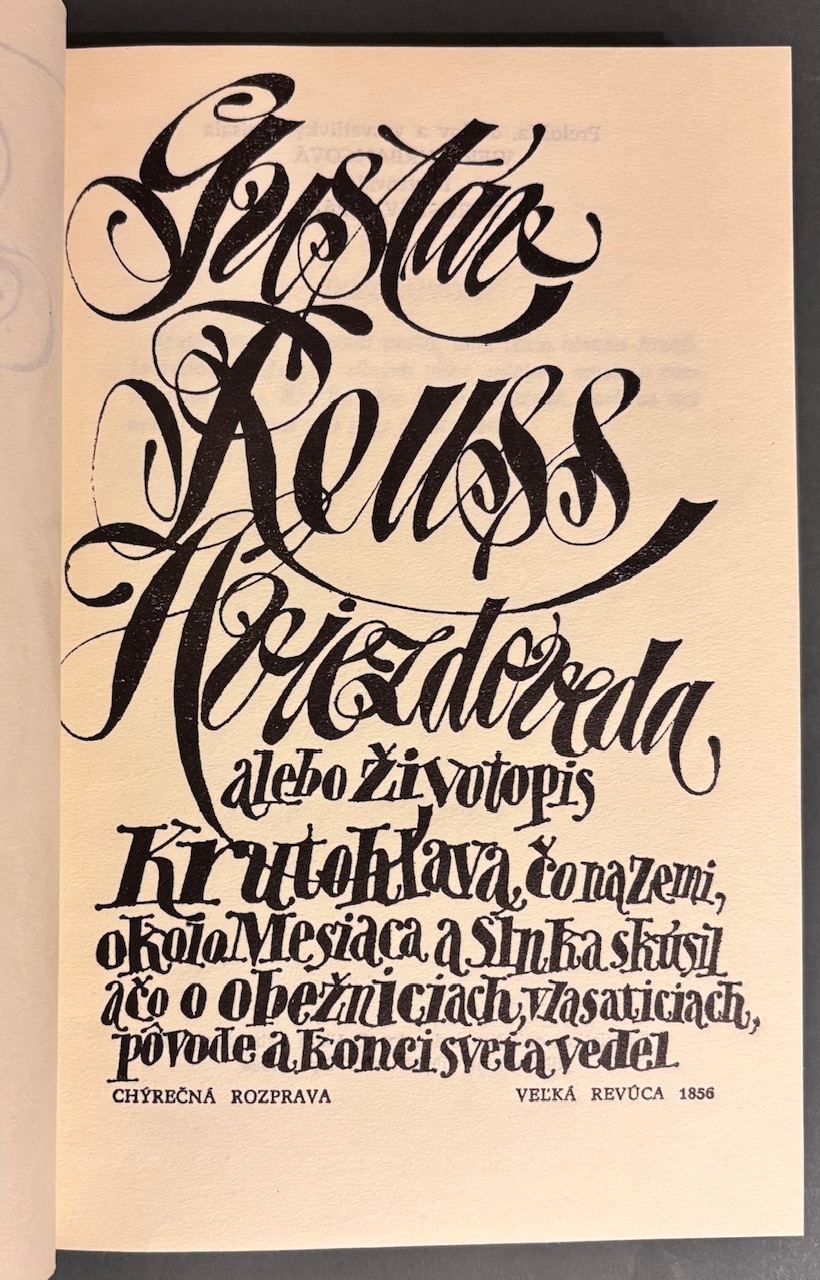 Gustáv
Reuss
Hviezdoveda
alebo životopis
Krutohlava, čo na Zemi,
okolo Mesiaca a Slnka skúsil
a čo o obežniciach, vlasaticiach,
pôvode a konci sveta vedel
CHÝREČNÁ ROZPRAVA VEĽKÁ REVÚCA 1856